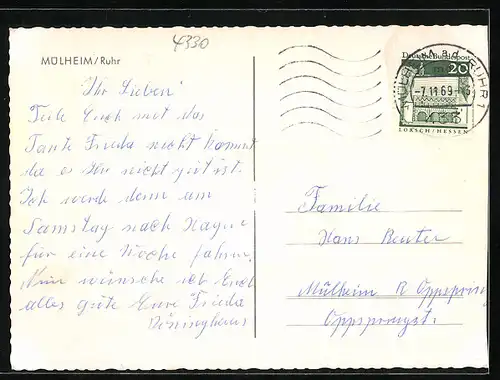 4330
MÜLHEIM/Ruhr
Ihr Lieben
Teile Euch mit das
Tante Frieda nicht kommt
da es Ihr nicht gut ist.
Ich werde dann am
Samstag nach
für eine Woche fahren.
Nun wünsche ich Euch
alles gute Eure Frieda
Döninghaus
Deutsche Bundespost
20
-7.11.69-
RUHR 1
LORSCH/HESSEN
Familie
Hans Reuter
Mülheim R Oppspring